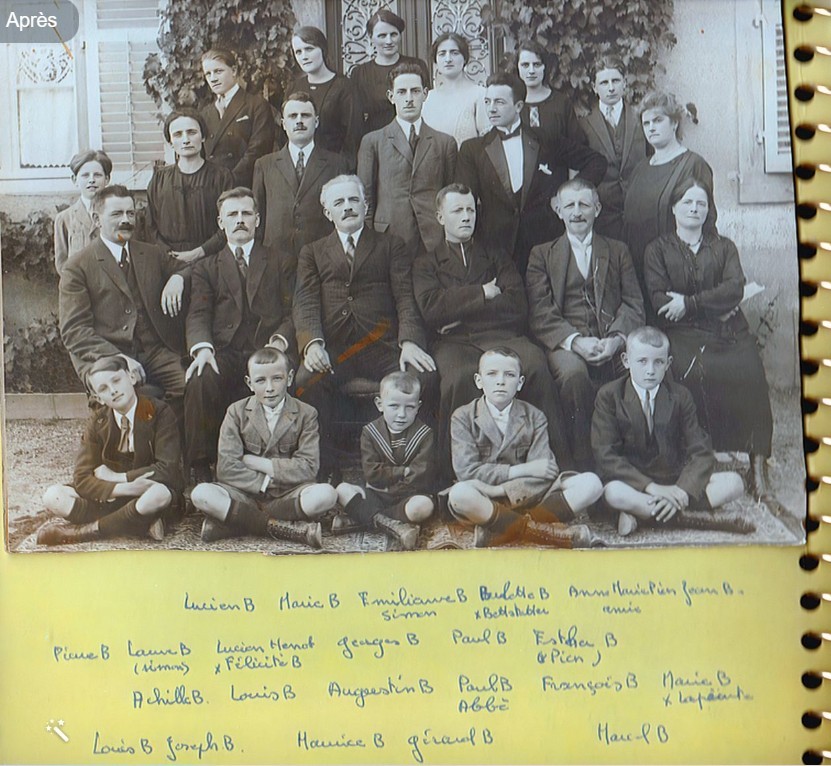 Après
Lucien B Marie B Emilienne B Paulette B Anne Marie Pien Jean B.
simon x Bettstetter amie
Pierre B Laure B Lucien Henot Georges B Paul B Esther B
(simon) x Félicité B (x Pien)
Achille B. Louis B Augustin B Paul B François B Marie B
Abbé x
Louis B Joseph B. Maurice B gérard B Marcel B